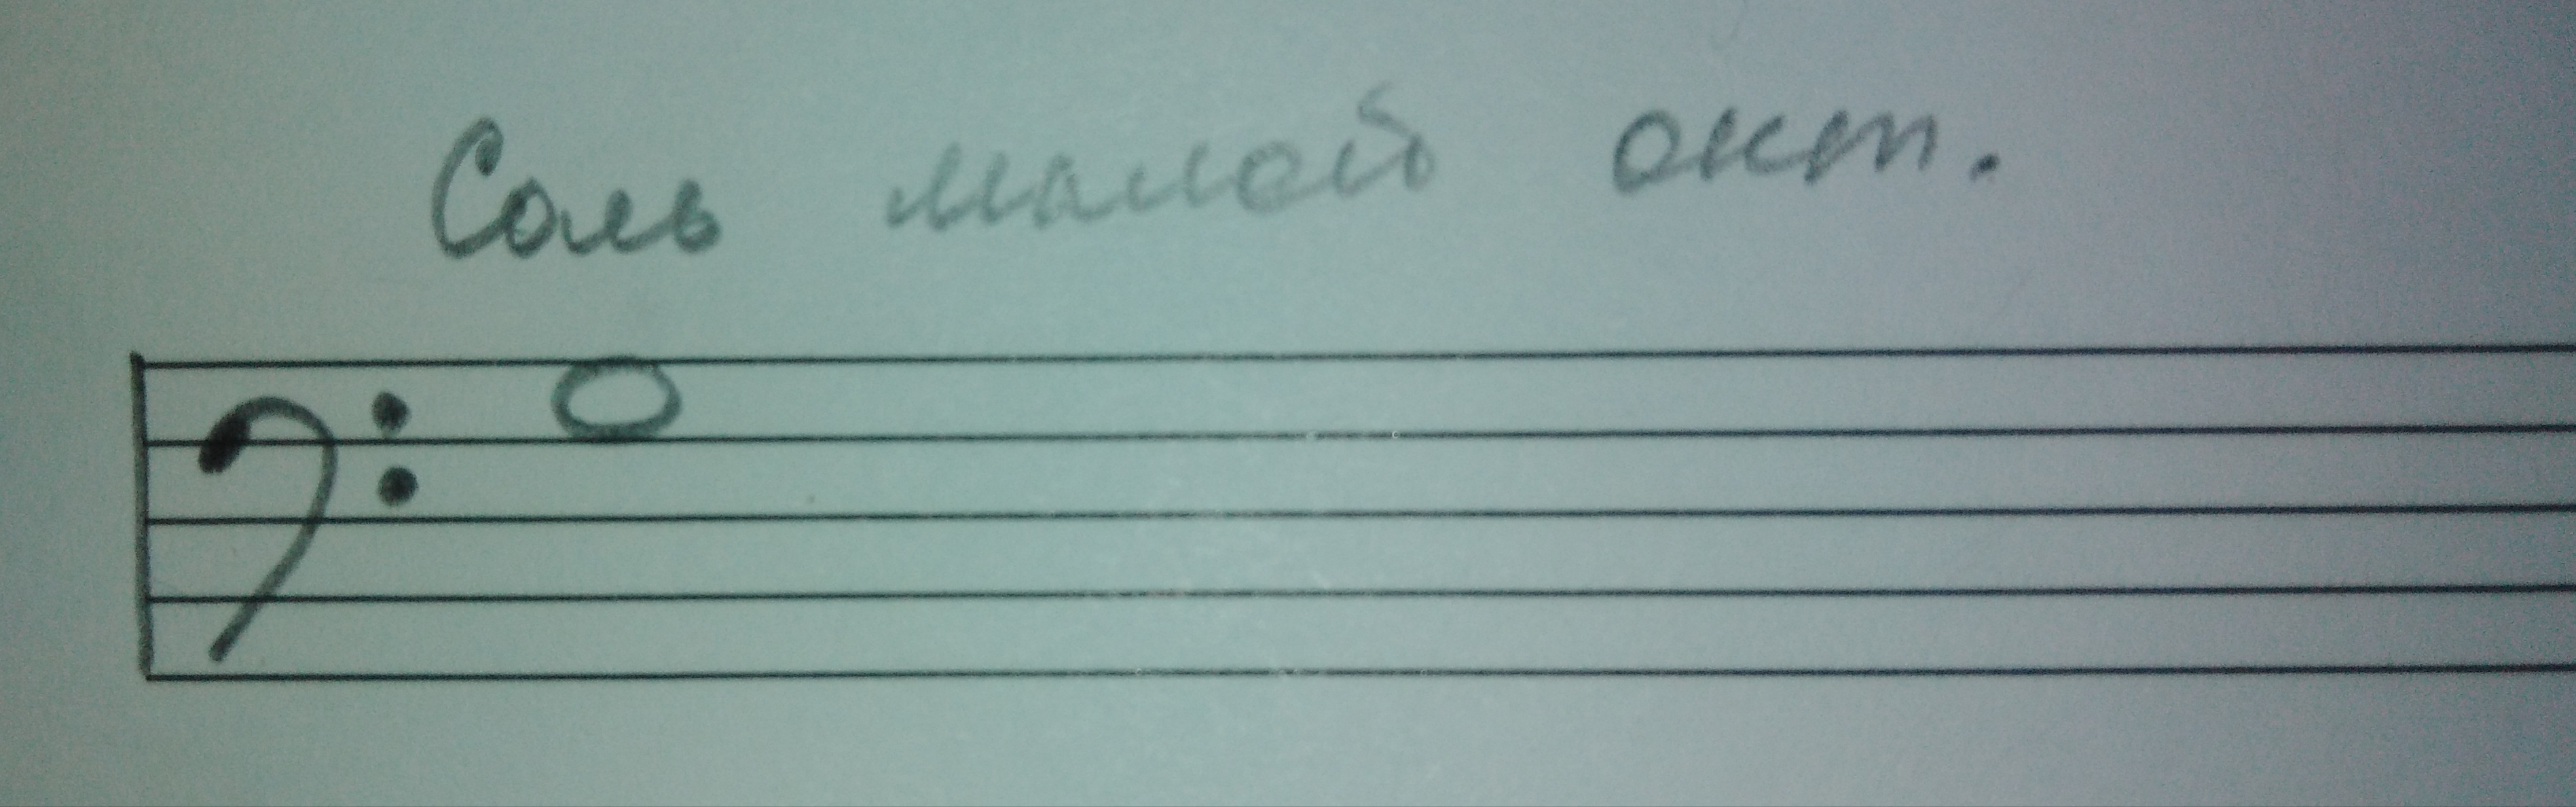 Соль малой окт.